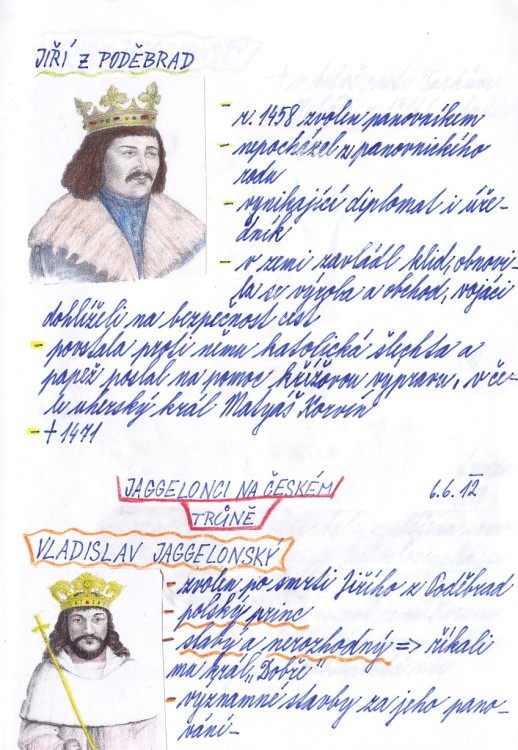 JIŘÍ Z PODĚBRAD
- r. 1458 zvolen panovníkem
- nepocházel z panovnického
rodu
- vynikající diplomat i úře-
dník
- v zemi zavládl klid, obnovi-
la se výroba a obchod, vojáci
dohlíželi na bezpečnost cest
- povstala proti němu katolická šlechta a
papež poslal na pomoc křížovou výpravu, v če-
le uherský král Matyáš Korvín
- † 1471
JAGGELONCI NA ČESKÉM
TRŮNĚ
6.6.12
VLADISLAV JAGGELONSKÝ
- zvolen po smrti Jiřího z Poděbrad
polský princ
- slabý a nerozhodný => říkali
mu král „Dobře"
- významné stavby za jeho pano-
vání -